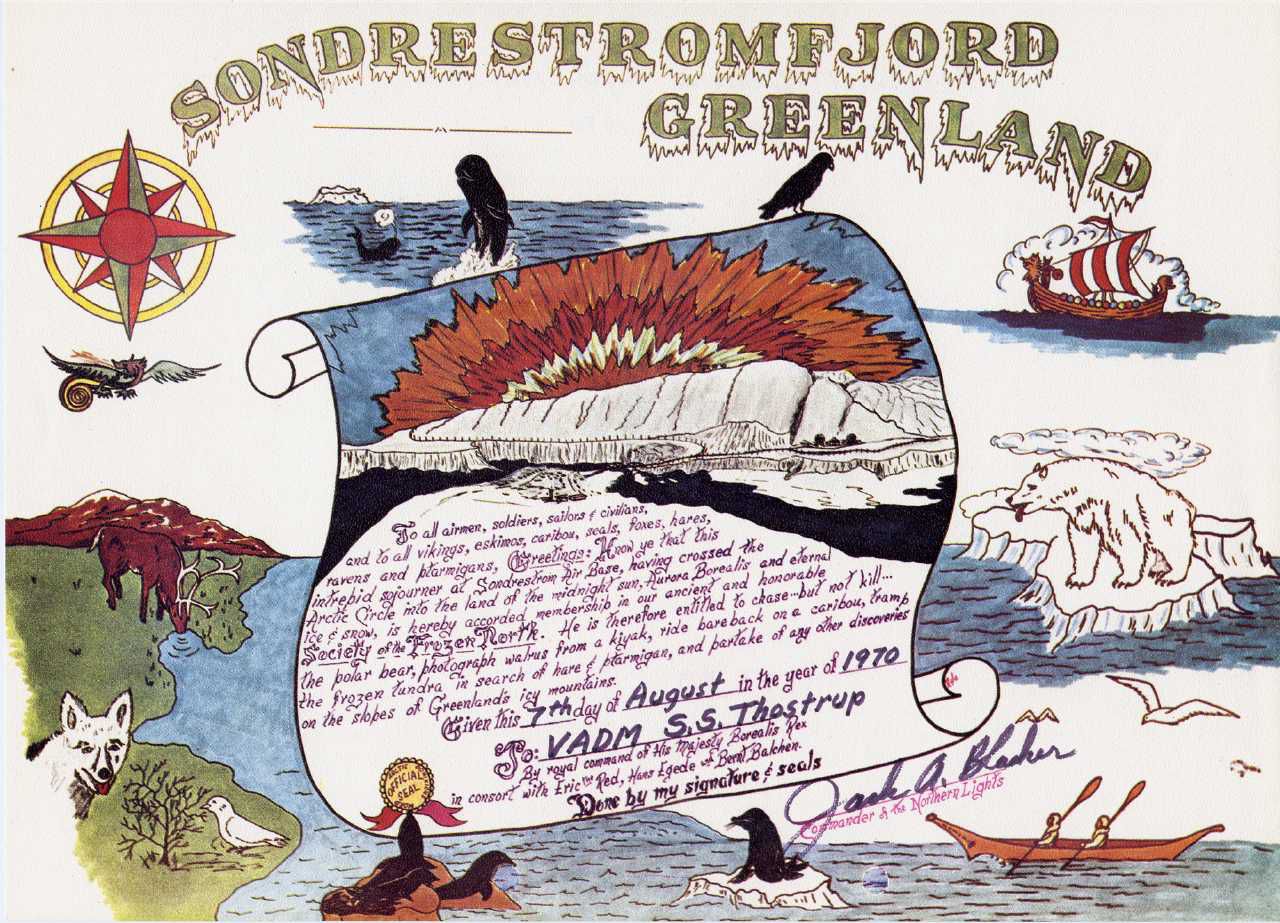 SONDRESTROMFJORD
GREENLAND
To all airmen, soldiers, sailors & civilians,
and to all vikings, eskimos, caribou, seals, foxes, hares,
ravens and ptarmigans, Greetings: Know ye that this
intrepid sojourner at Sondrestrom Air Base, having crossed the
Arctic Circle into the land of the midnight sun, Aurora Borealis and eternal
ice & snow, is hereby accorded membership in our ancient and honorable
Society of the Frozen North. He is therefore entitled to chase...but not kill...
the polar bear, photograph walrus from a kiyak, ride bareback on a caribou, tramp
the frozen tundra in search of hare & ptarmigan, and partake of any other discoveries
on the slopes of Greenland's icy mountains.
Given this 7th day of August in the year of 1970
To: VADM S.S. Thostrup
By royal command of His Majesty Borealis Rex
in consort with Eric the Red, Hans Egede & Bernt Balchen.
Done by my signature & seals
OFFICIAL
SEAL
Jack A.
Commander of the Northern Lights